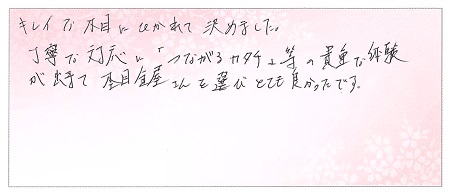 キレイな木目にひかれて決めました。
丁寧な対応に「つながるカタチ」等の貴重な体験
が出来て杢目金屋さんを選びとても良かったです。